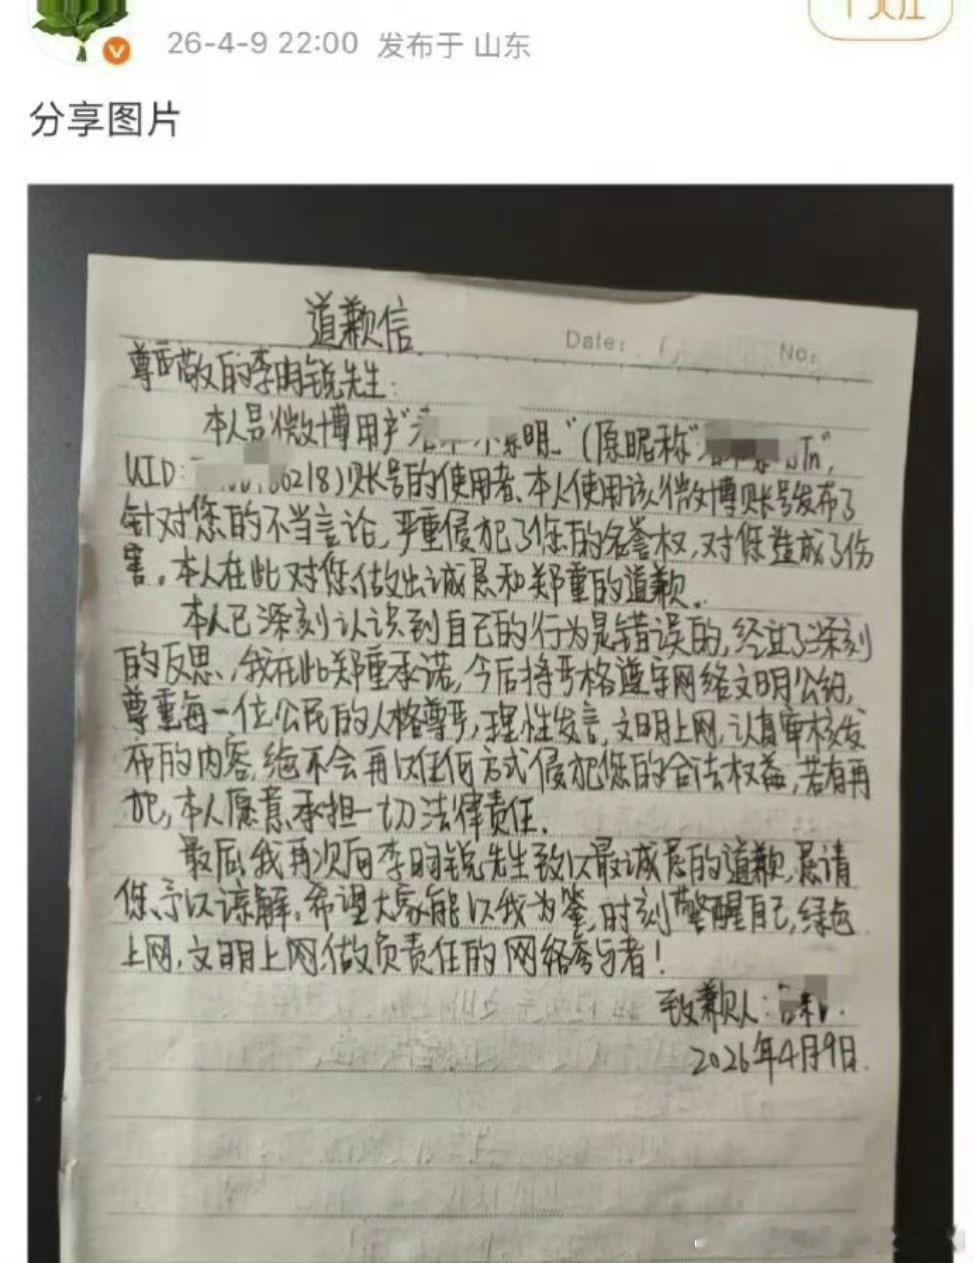 26-4-9 22:00 发布于 山东
分享图片
道歉信
Date: No:
尊敬的李昀锐先生:
本人是微博用户" 明"(原昵称" Tn",
UID: 6218)账号的使用者、本人使用该微博账号发布了
针对您的不当言论,严重侵犯了您的名誉权,对您造成了伤
害。本人在此对您做出诚恳和郑重的道歉.
本人已深刻认识到自己的行为是错误的,经过了深刻
的反思,我在此郑重承诺,今后将严格遵守网络文明公约,
尊重每一位公民的人格尊严,理性发言,文明上网,认真审核发
布的内容,绝不会再以任何方式侵犯您的合法权益,若有再
犯,本人愿意承担一切法律责任.
最后,我再次向李昀锐先生致以最诚恳的道歉,恳请
您予以谅解.希望大家能以我为鉴,时刻警醒自己,绿色
上网,文明上网,做负责任的网络参与者!
致歉人:
2026年4月9日.